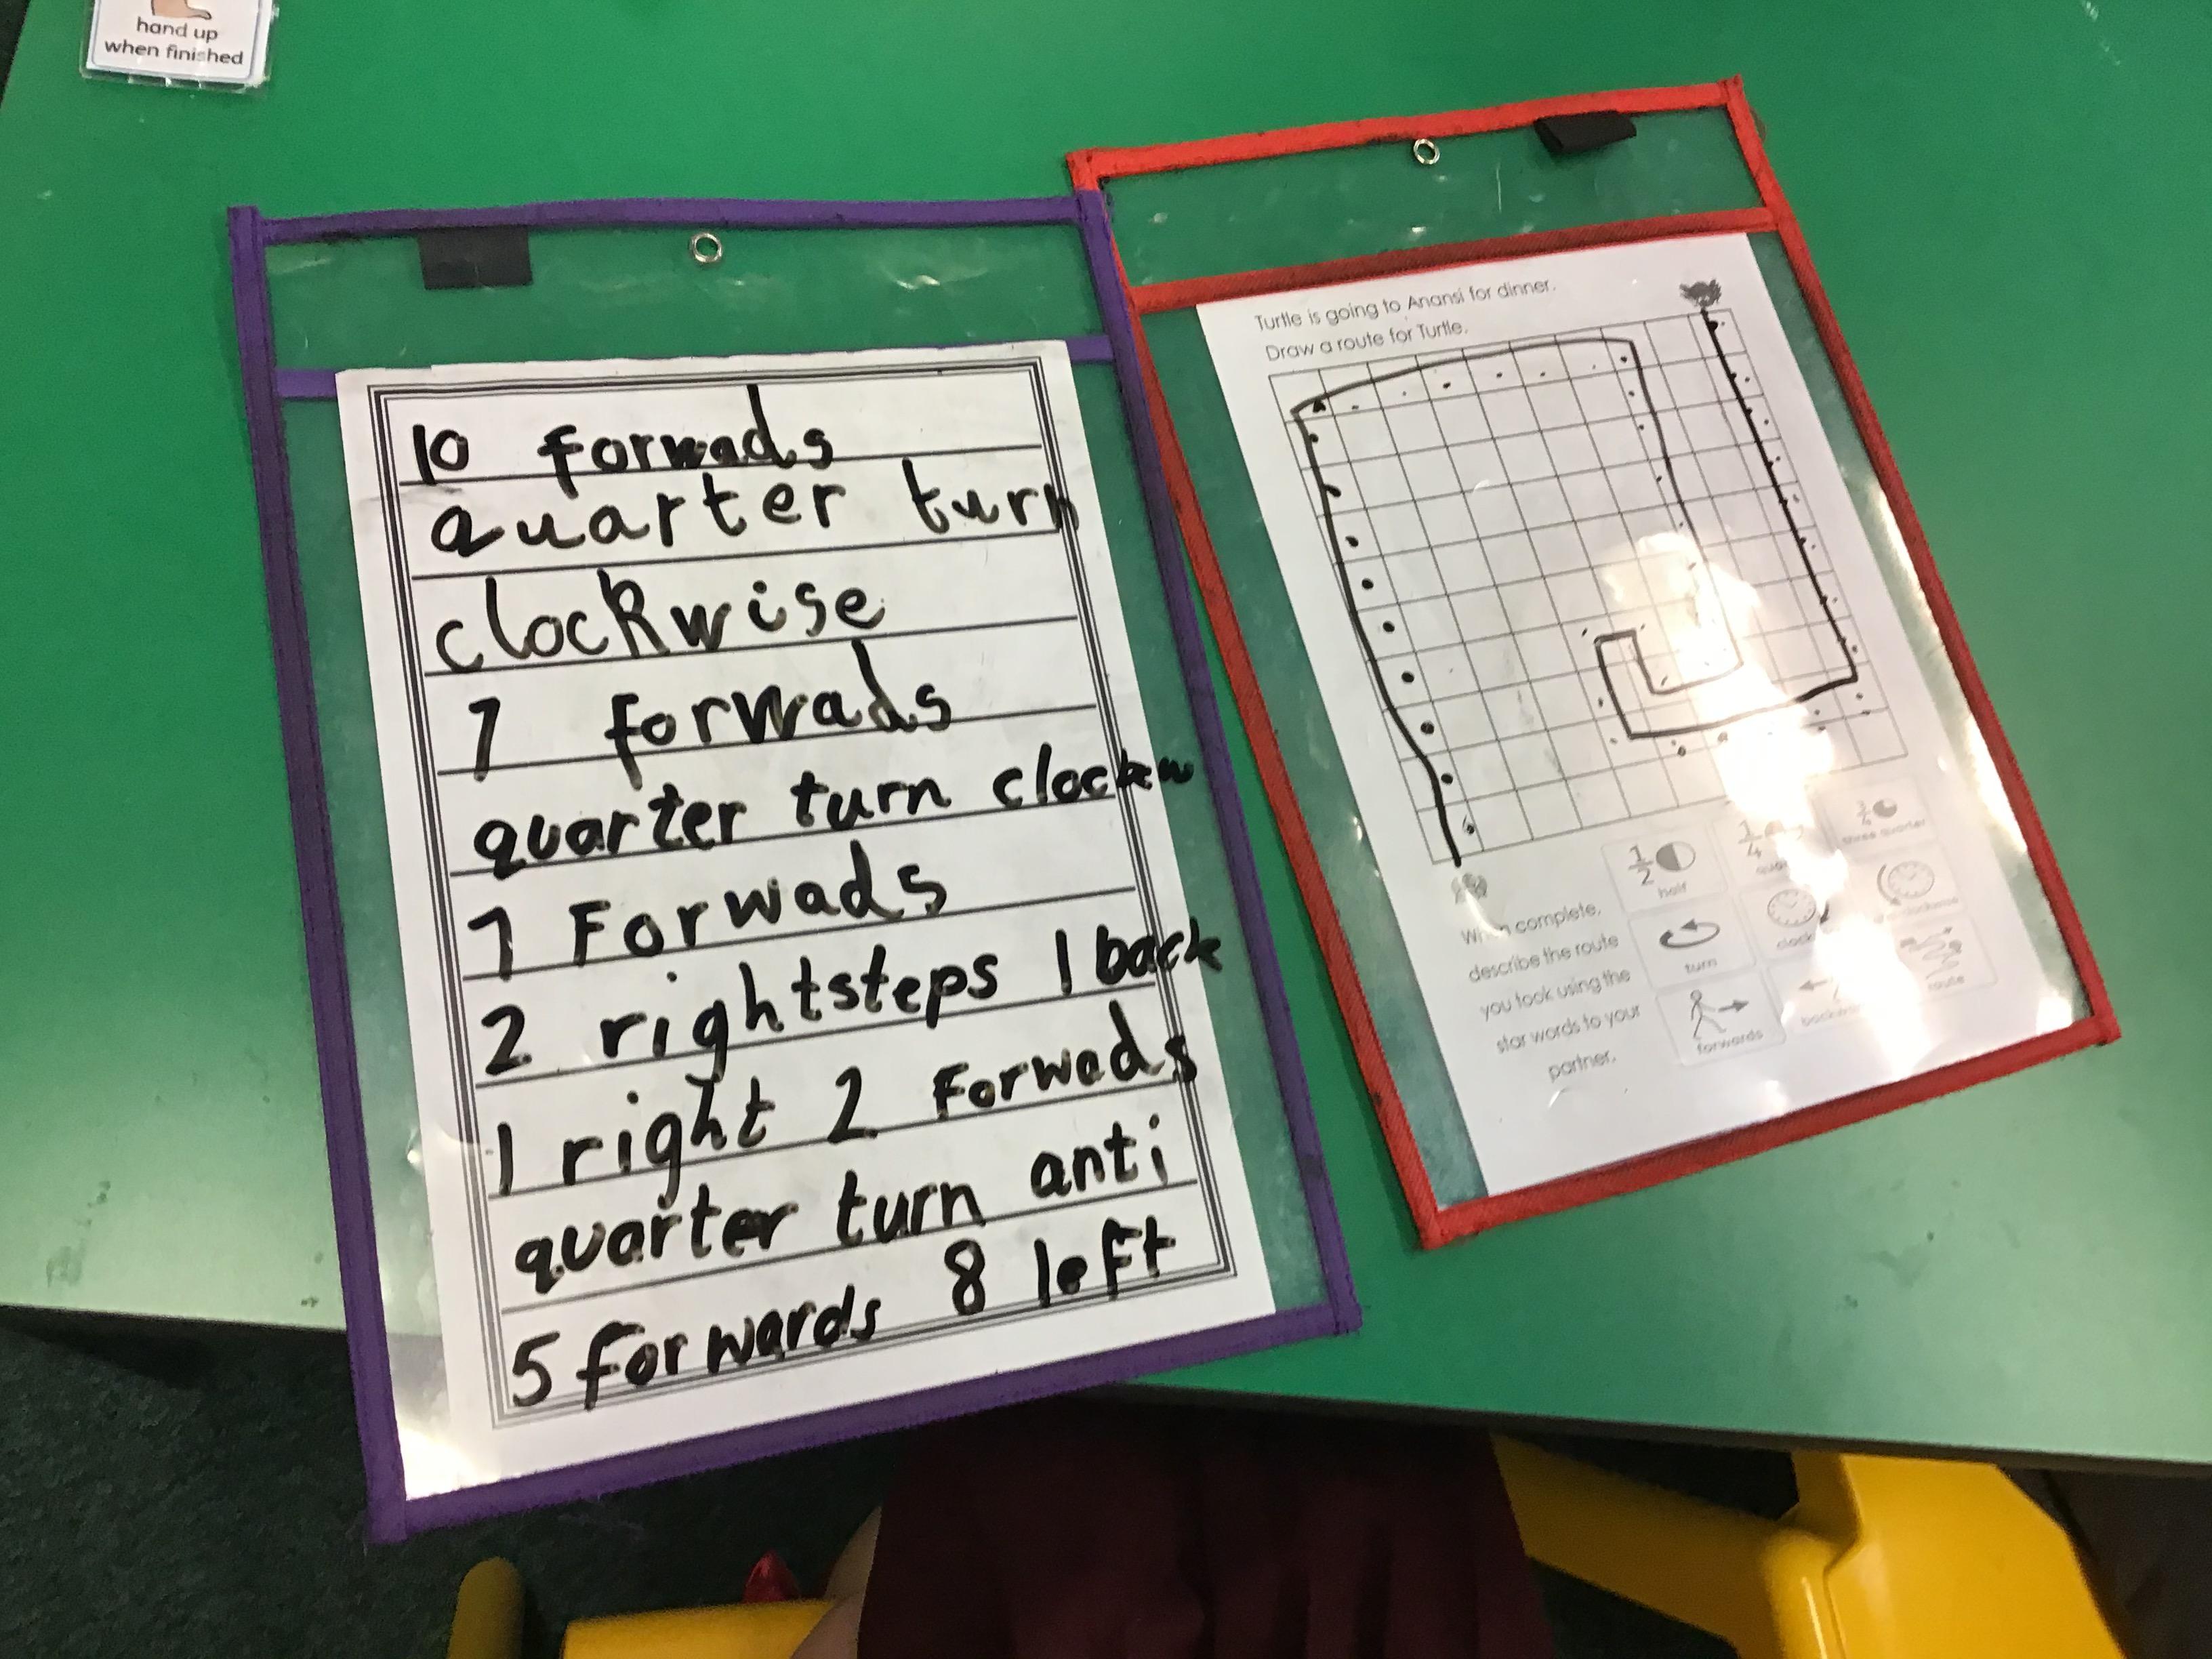 hand up
when finished
10 forwads
quarter turn
clockwise
7 forwads
quarter turn clockw
7 Forwads
2 rightsteps 1 back
1 right 2 Forwads
quarter turn anti
5 forwards 8 left
Turtle is going to Anansi for dinner.
Draw a route for Turtle.
When complete,
describe the route
you took using the
star words to your
partner.
1/2
half
1/4
3/4
three quarter
turn
forwards
route